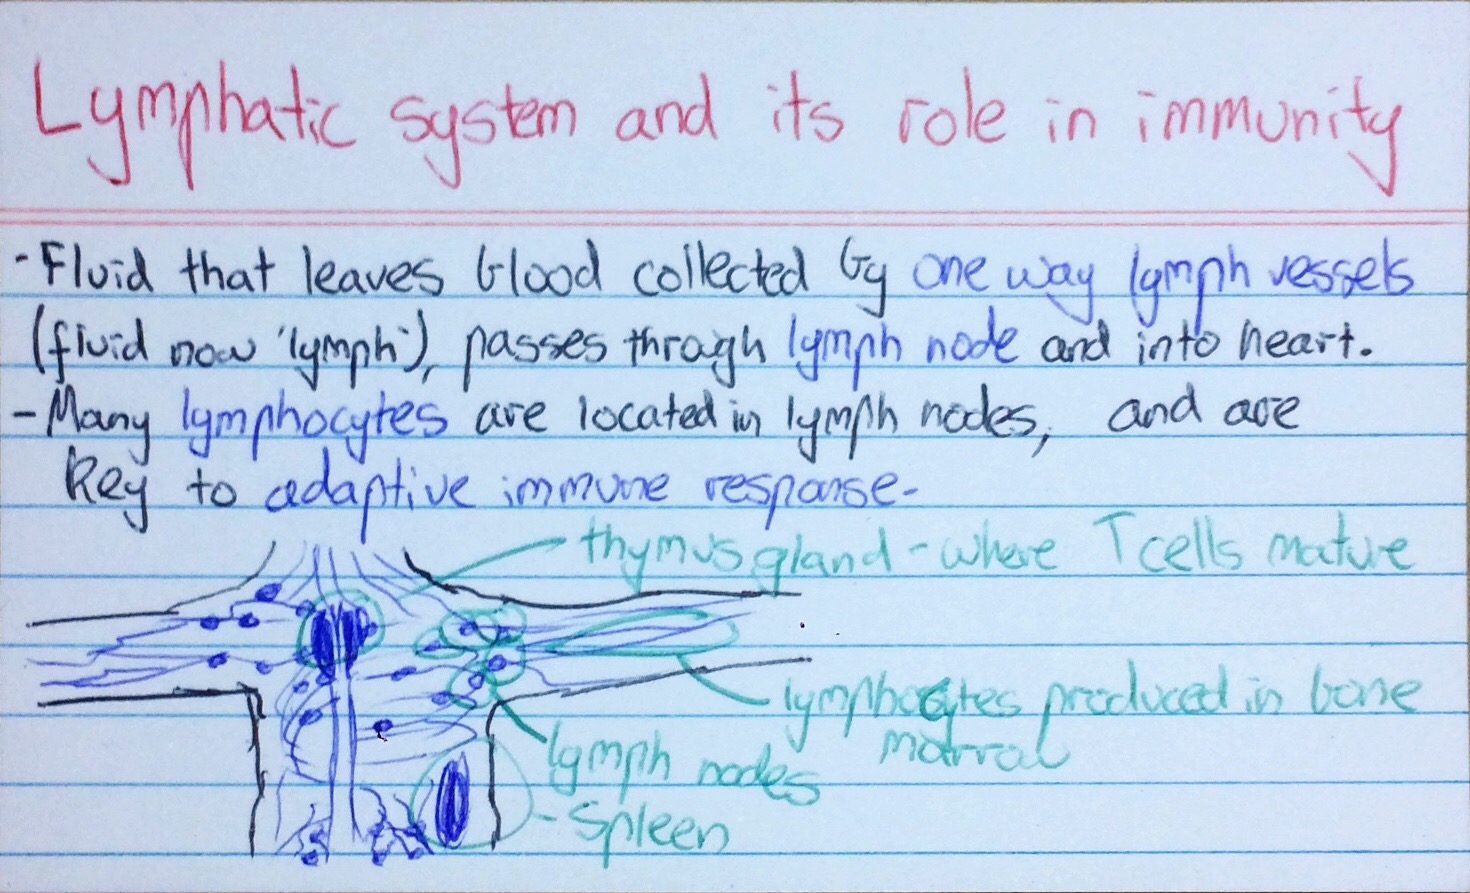 Lymphatic system and its role in immunity
- Fluid that leaves blood collected by one way lymph vessels
(fluid now 'lymph'), passes through lymph node and into heart.
- Many lymphocytes are located in lymph nodes, and are
Key to adaptive immune response-
thymus gland - where T cells mature
lymphocytes produced in bone
marrow
lymph nodes
- Spleen